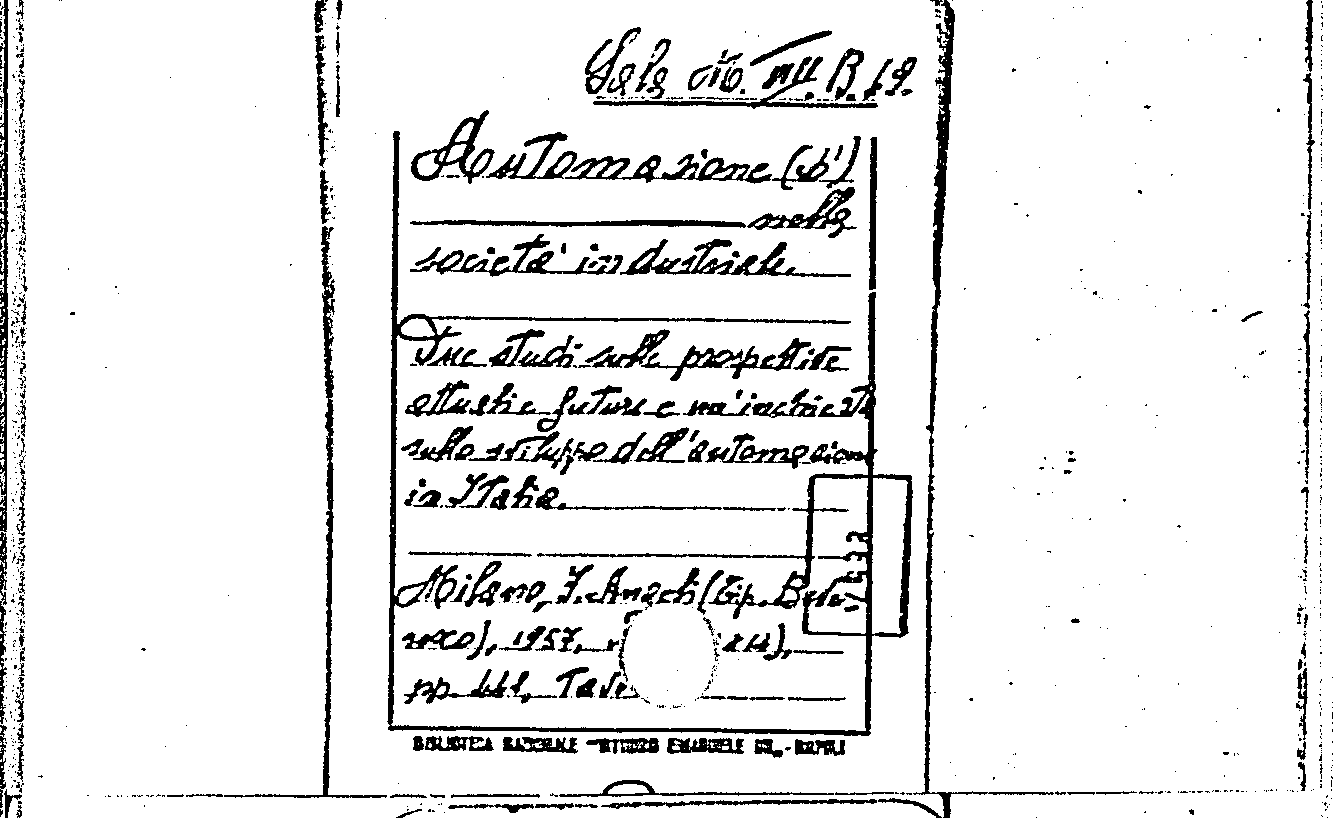 Sala cib. VII. B. 19.
Automazione (L')
nella
società industriale.
Due studi sulle prospettive
attuali e future e un'inchiesta
sullo sviluppo dell'automazione
in Italia.
Milano, F. Angeli (Tip.
1957,
pp. 441, Tav.
BIBLIOTECA NAZIONALE "VITTORIO EMANUELE III" - NAPOLI